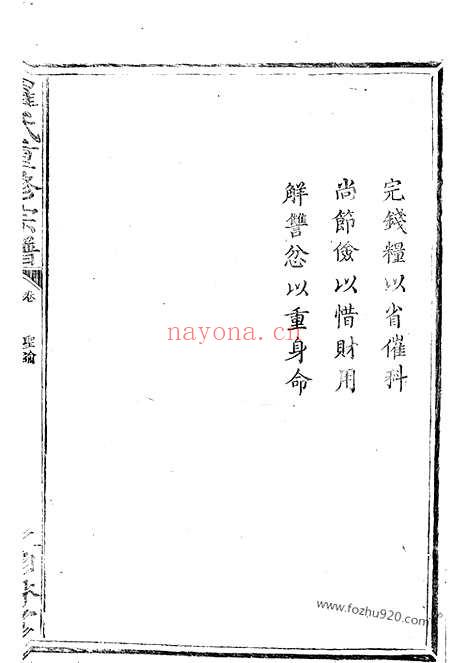 完錢糧以省催科
尚節儉以惜財用
解讐忿以重身命
羅氏重修宗譜
卷
聖諭
nayona.cn
www.fozhu920.com